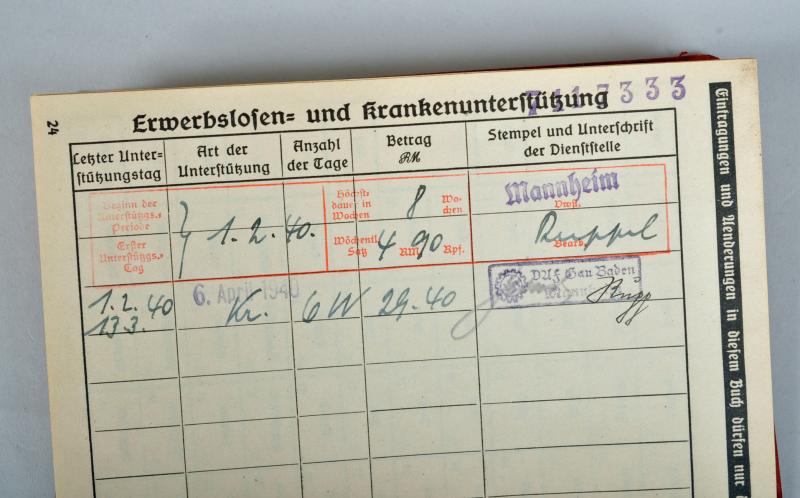 24
7117333
Erwerbslosen= und Krankenunterstützung
Letzter Unter=
stützungstag
Art der
Unterstützung
Anzahl
der Tage
Betrag
RM
Stempel und Unterschrift
der Dienststelle
Beginn der
Unterstützgs.=
Periode
Erster
Unterstützgs.=
Tag
1. 2. 40.
Höchst=
dauer in
Wochen
8 Wo=
chen
Wöchentl.
Satz
4 RM 90 Rpf.
Mannheim
Vwst.
Ruppel
Bearb.
1. 2. 40
13.3.
6. April 1940
Kr.
6 W
29.40
DAF Gau Baden
Rupp
Eintragungen und Aenderungen in diesem Buch dürfen nur